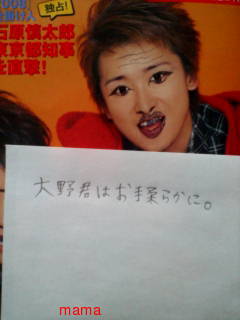 2008
独占!
仕掛け人
石原慎太郎
東京都知事
を直撃!
大野君はお手柔らかに。
mama